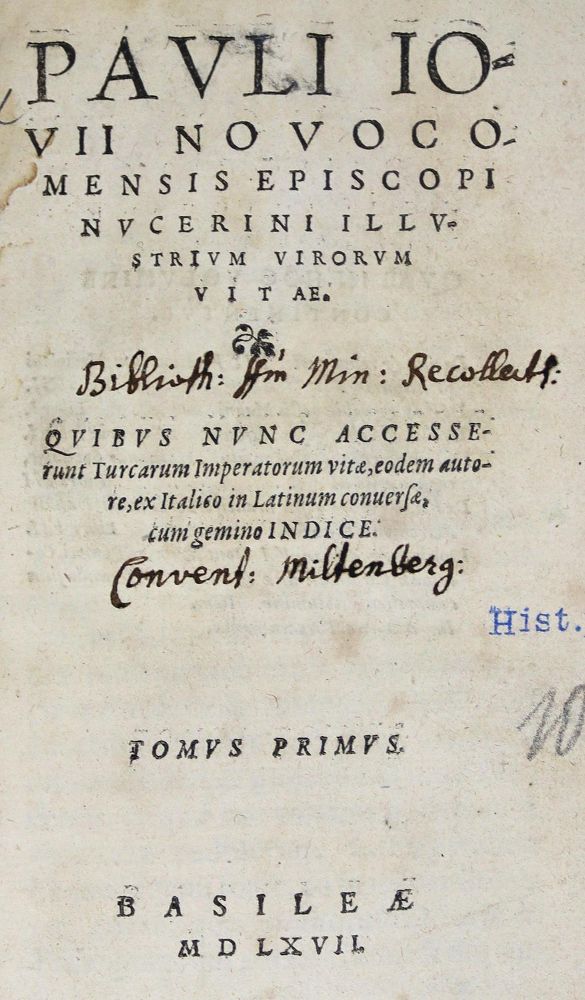 PAVLI IO-
VII NOVOCO-
MENSIS EPISCOPI
NVCERINI ILLV-
STRIVM VIRORVM
VITAE.
Biblioth: Min: Recollect:
QVIBVS NVNC ACCESSE-
runt Turcarum Imperatorum vitæ, eodem auto-
re, ex Italico in Latinum conuerſæ,
cum gemino INDICE.
Convent: Miltenberg:
Hist.
10
TOMVS PRIMVS.
BASILEÆ
MDLXVII.